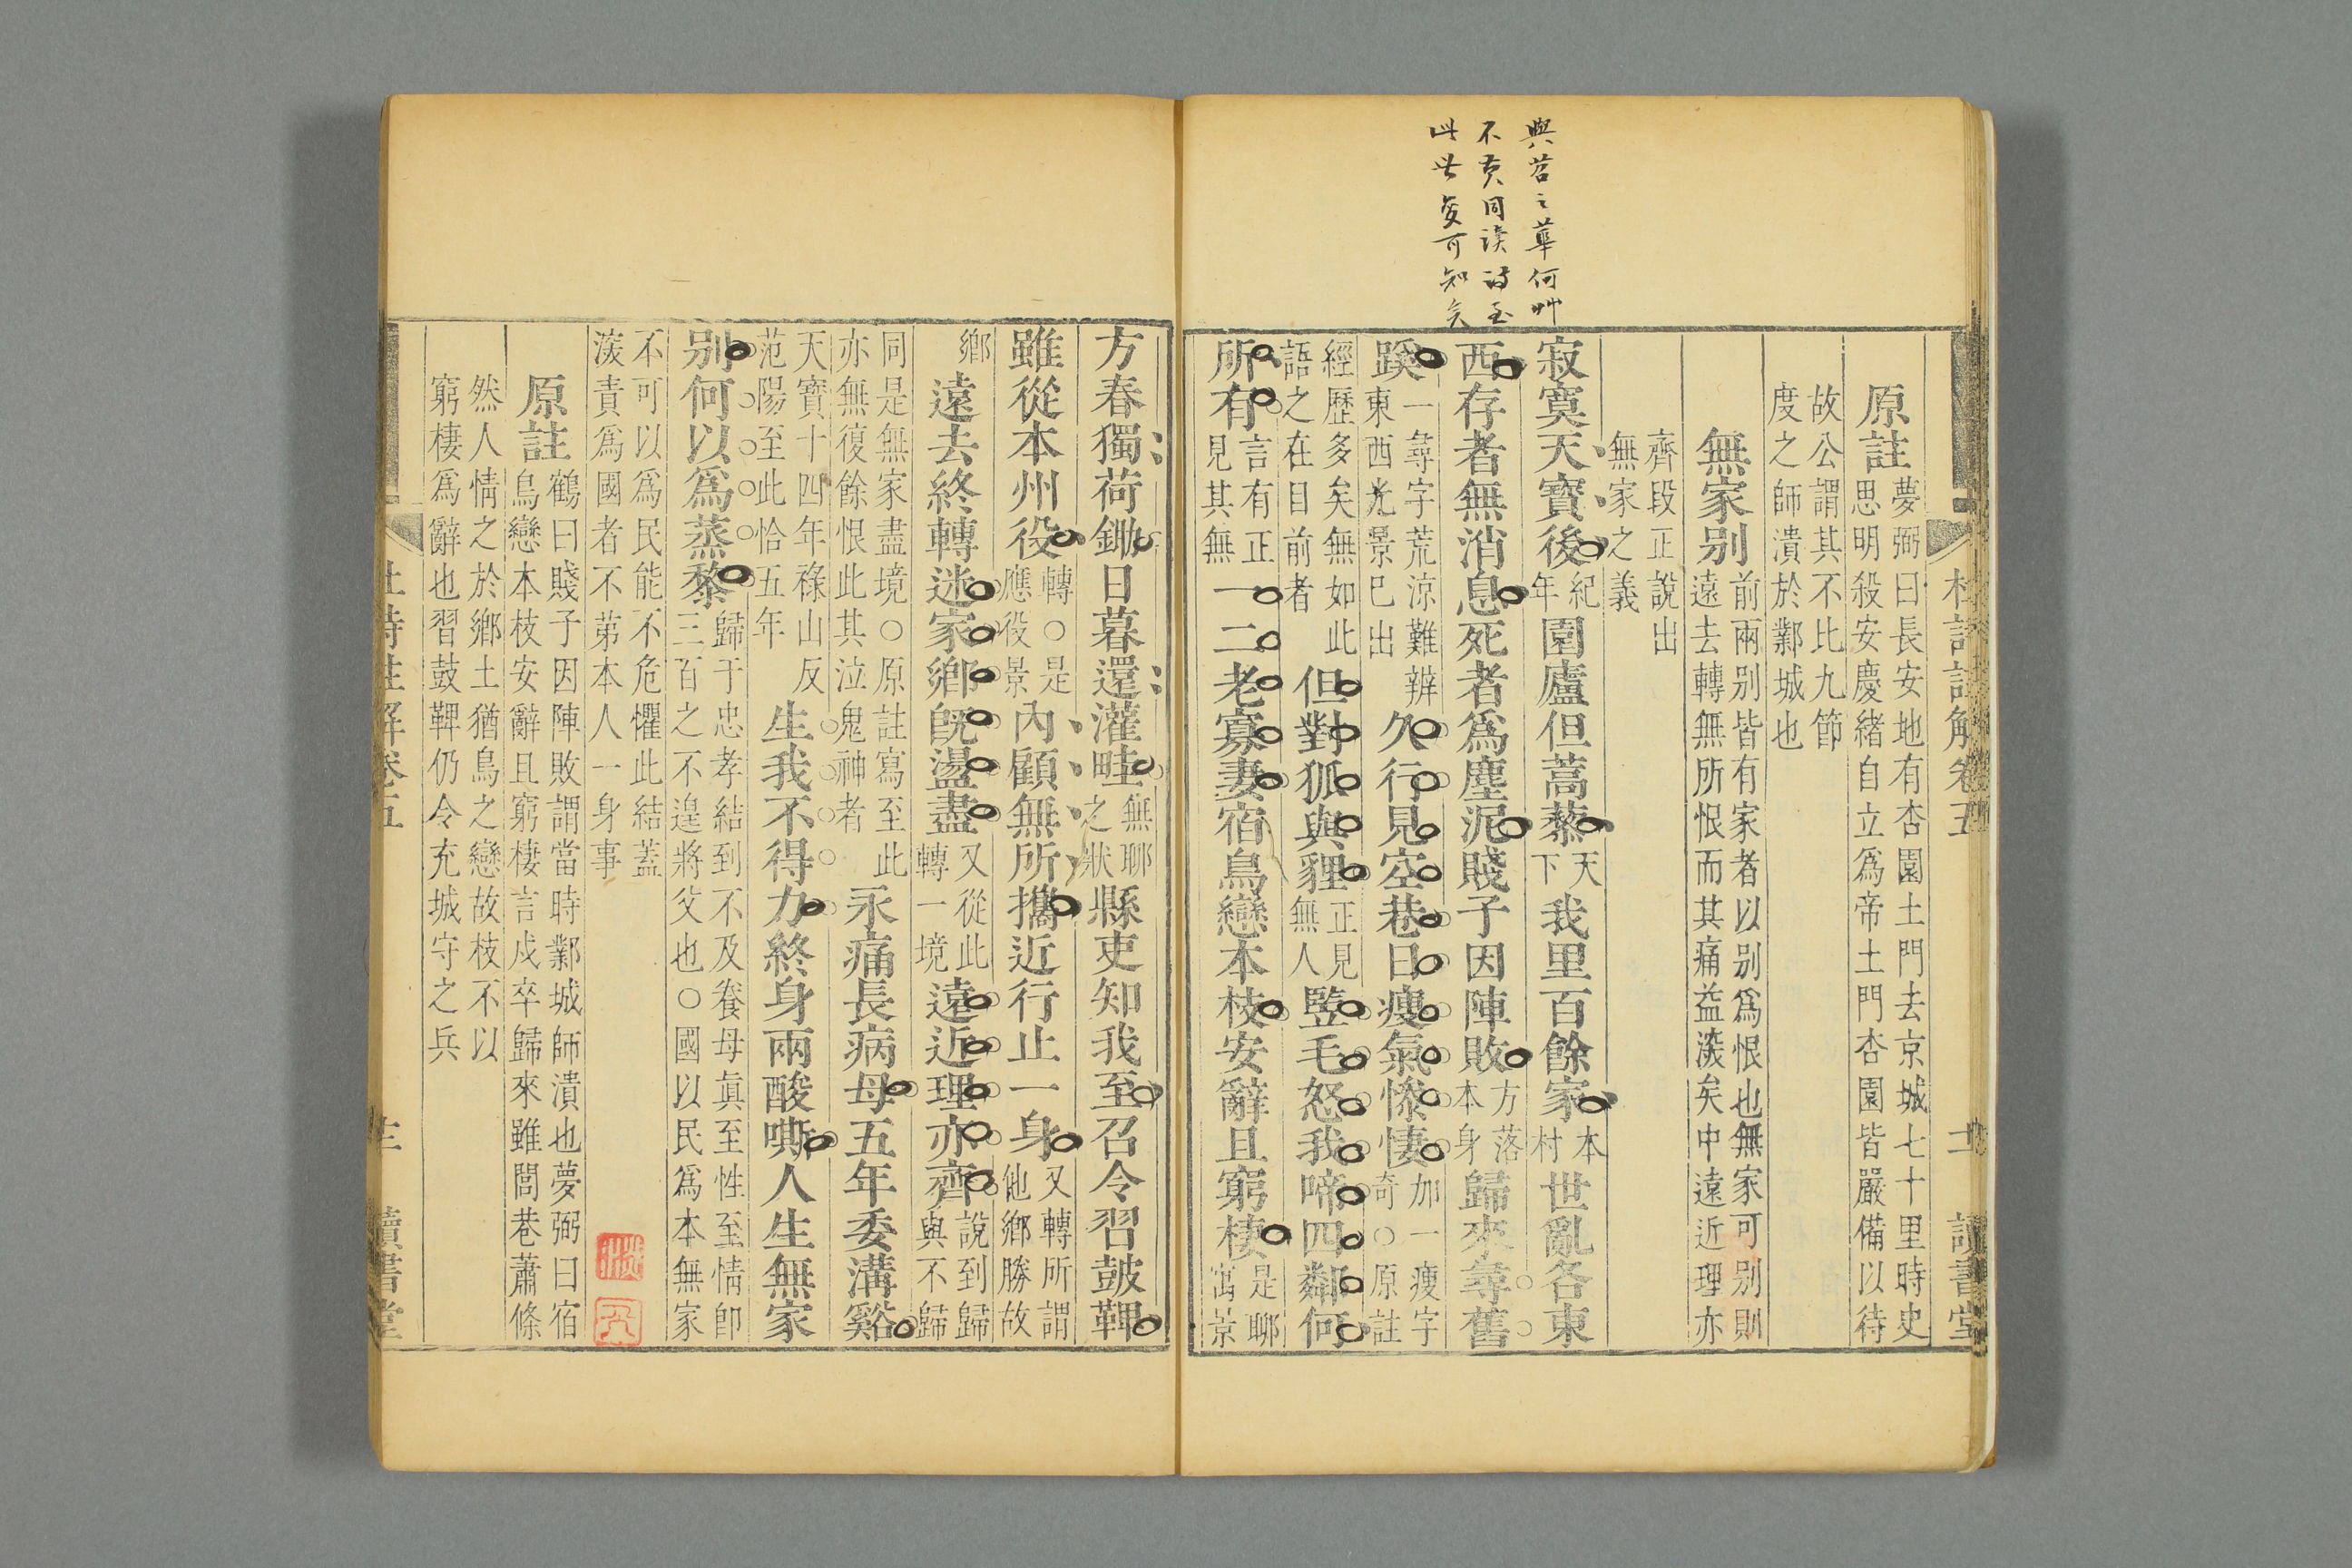 與苕之華何艸
不黃同讀詩至
此世變可知矣
原註夢弼曰長安地有杏園土門去京城七十里時史
思明殺安慶緒自立為帝土門杏園皆嚴備以待
故公謂其不比九節
度之師潰於鄴城也
無家別前兩别皆有家者以别爲恨也無家可别則
遠去轉無所恨而其痛益深矣中遠近理亦
齊段正說出
無家之義
寂寞天寶後紀年園廬但蒿藜天下我里百餘家本村世亂各東
西存者無消息死者爲塵泥賤子因陣敗方落本身歸來尋舊
蹊一尋字荒涼難辨東西光景巳出久行見空巷日瘦氣慘悽加一瘦字奇○原註
經歷多矣無如此語之在目前者但對狐與貍正見無人豎毛怒我啼四鄰何
所有言有正見其無一二老寡妻宿鳥戀本枝安辭且窮棲是聊寓景
杜詩註解卷五 十一 讀書堂
方春獨荷鋤日暮還灌畦無聊之狀縣吏知我至召令習鼓鞞
雖從本州役轉○是應役景內顧無所攜近行止一身又轉所謂他鄉勝故
鄉遠去終轉迷家鄉旣盪盡又從此轉一境遠近理亦齊說到歸與不歸
同是無家盡境○原註寫至此亦無復餘恨此其泣鬼神者永痛長病母五年委溝谿
天寶十四年祿山反范陽至此恰五年生我不得力終身兩酸嘶人生無家
别何以爲蒸黎歸于忠孝結到不及養母眞至性至情卽三百之不遑將父也○國以民爲本無家
不可以爲民能不危懼此結蓋深責爲國者不第本人一身事
原註鶴曰賤子因陣敗謂當時鄴城師潰也夢弼曰宿
鳥戀本枝安辭且窮棲言戍卒歸來雖閭巷蕭條
然人情之於鄉土猶鳥之戀故枝不以
窮棲爲辭也習鼓鞞仍令充城守之兵
杜詩註解卷五 讀書堂